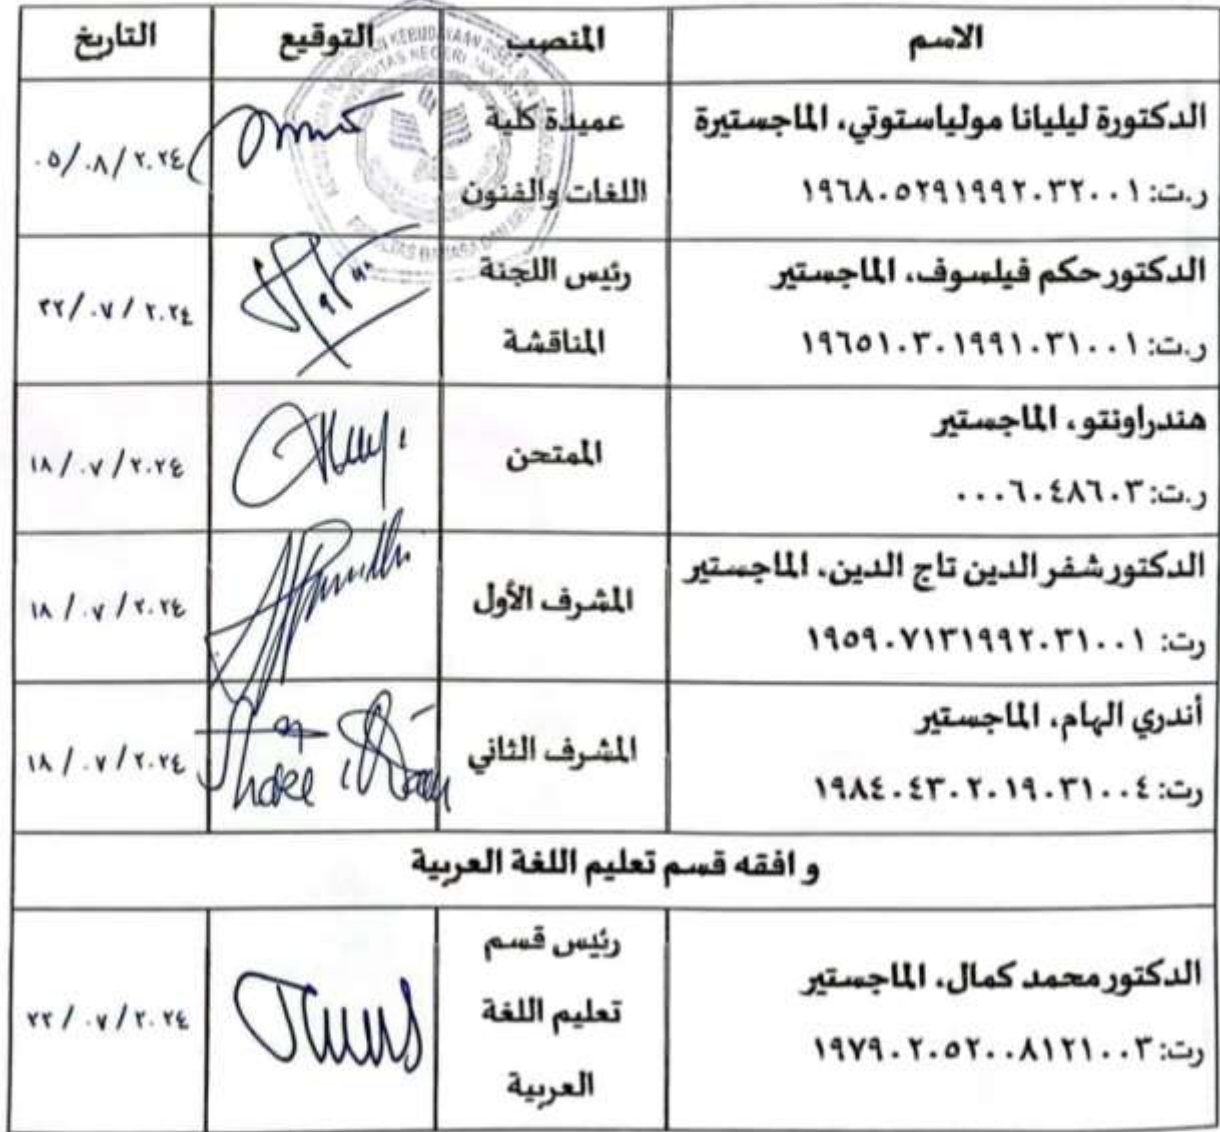 الاسم المنصب التوقيع التاريخ
الدكتورة ليليانا مولياستوتي، الماجستيرة
ر.ت: ١٩٦٨٠٥٢٩١٩٩٢٠٣٢٠٠١
عميدة كلية
اللغات والفنون
٠٥/٠٨/٢٠٢٤
الدكتور حكم فيلسوف، الماجستير
ر.ت: ١٩٦٥١٠٣٠١٩٩١٠٣١٠٠١
رئيس اللجنة
المناقشة
٢٢/٠٧/٢٠٢٤
هندراونتو، الماجستير
ر.ت: ٠٠٠٦٠٤٨٦٠٣
الممتحن
١٨/٠٧/٢٠٢٤
الدكتور شفر الدين تاج الدين، الماجستير
رت: ١٩٥٩٠٧١٣١٩٩٢٠٣١٠٠١
المشرف الأول
١٨/٠٧/٢٠٢٤
أندري الهام، الماجستير
رت: ١٩٨٤٠٤٣٠٢٠١٩٠٣١٠٠٤
المشرف الثاني
١٨/٠٧/٢٠٢٤
و افقه قسم تعليم اللغة العربية
الدكتور محمد كمال، الماجستير
رت: ١٩٧٩٠٢٠٥٢٠٠٨١٢١٠٠٣
رئيس قسم
تعليم اللغة
العربية
٢٢/٠٧/٢٠٢٤